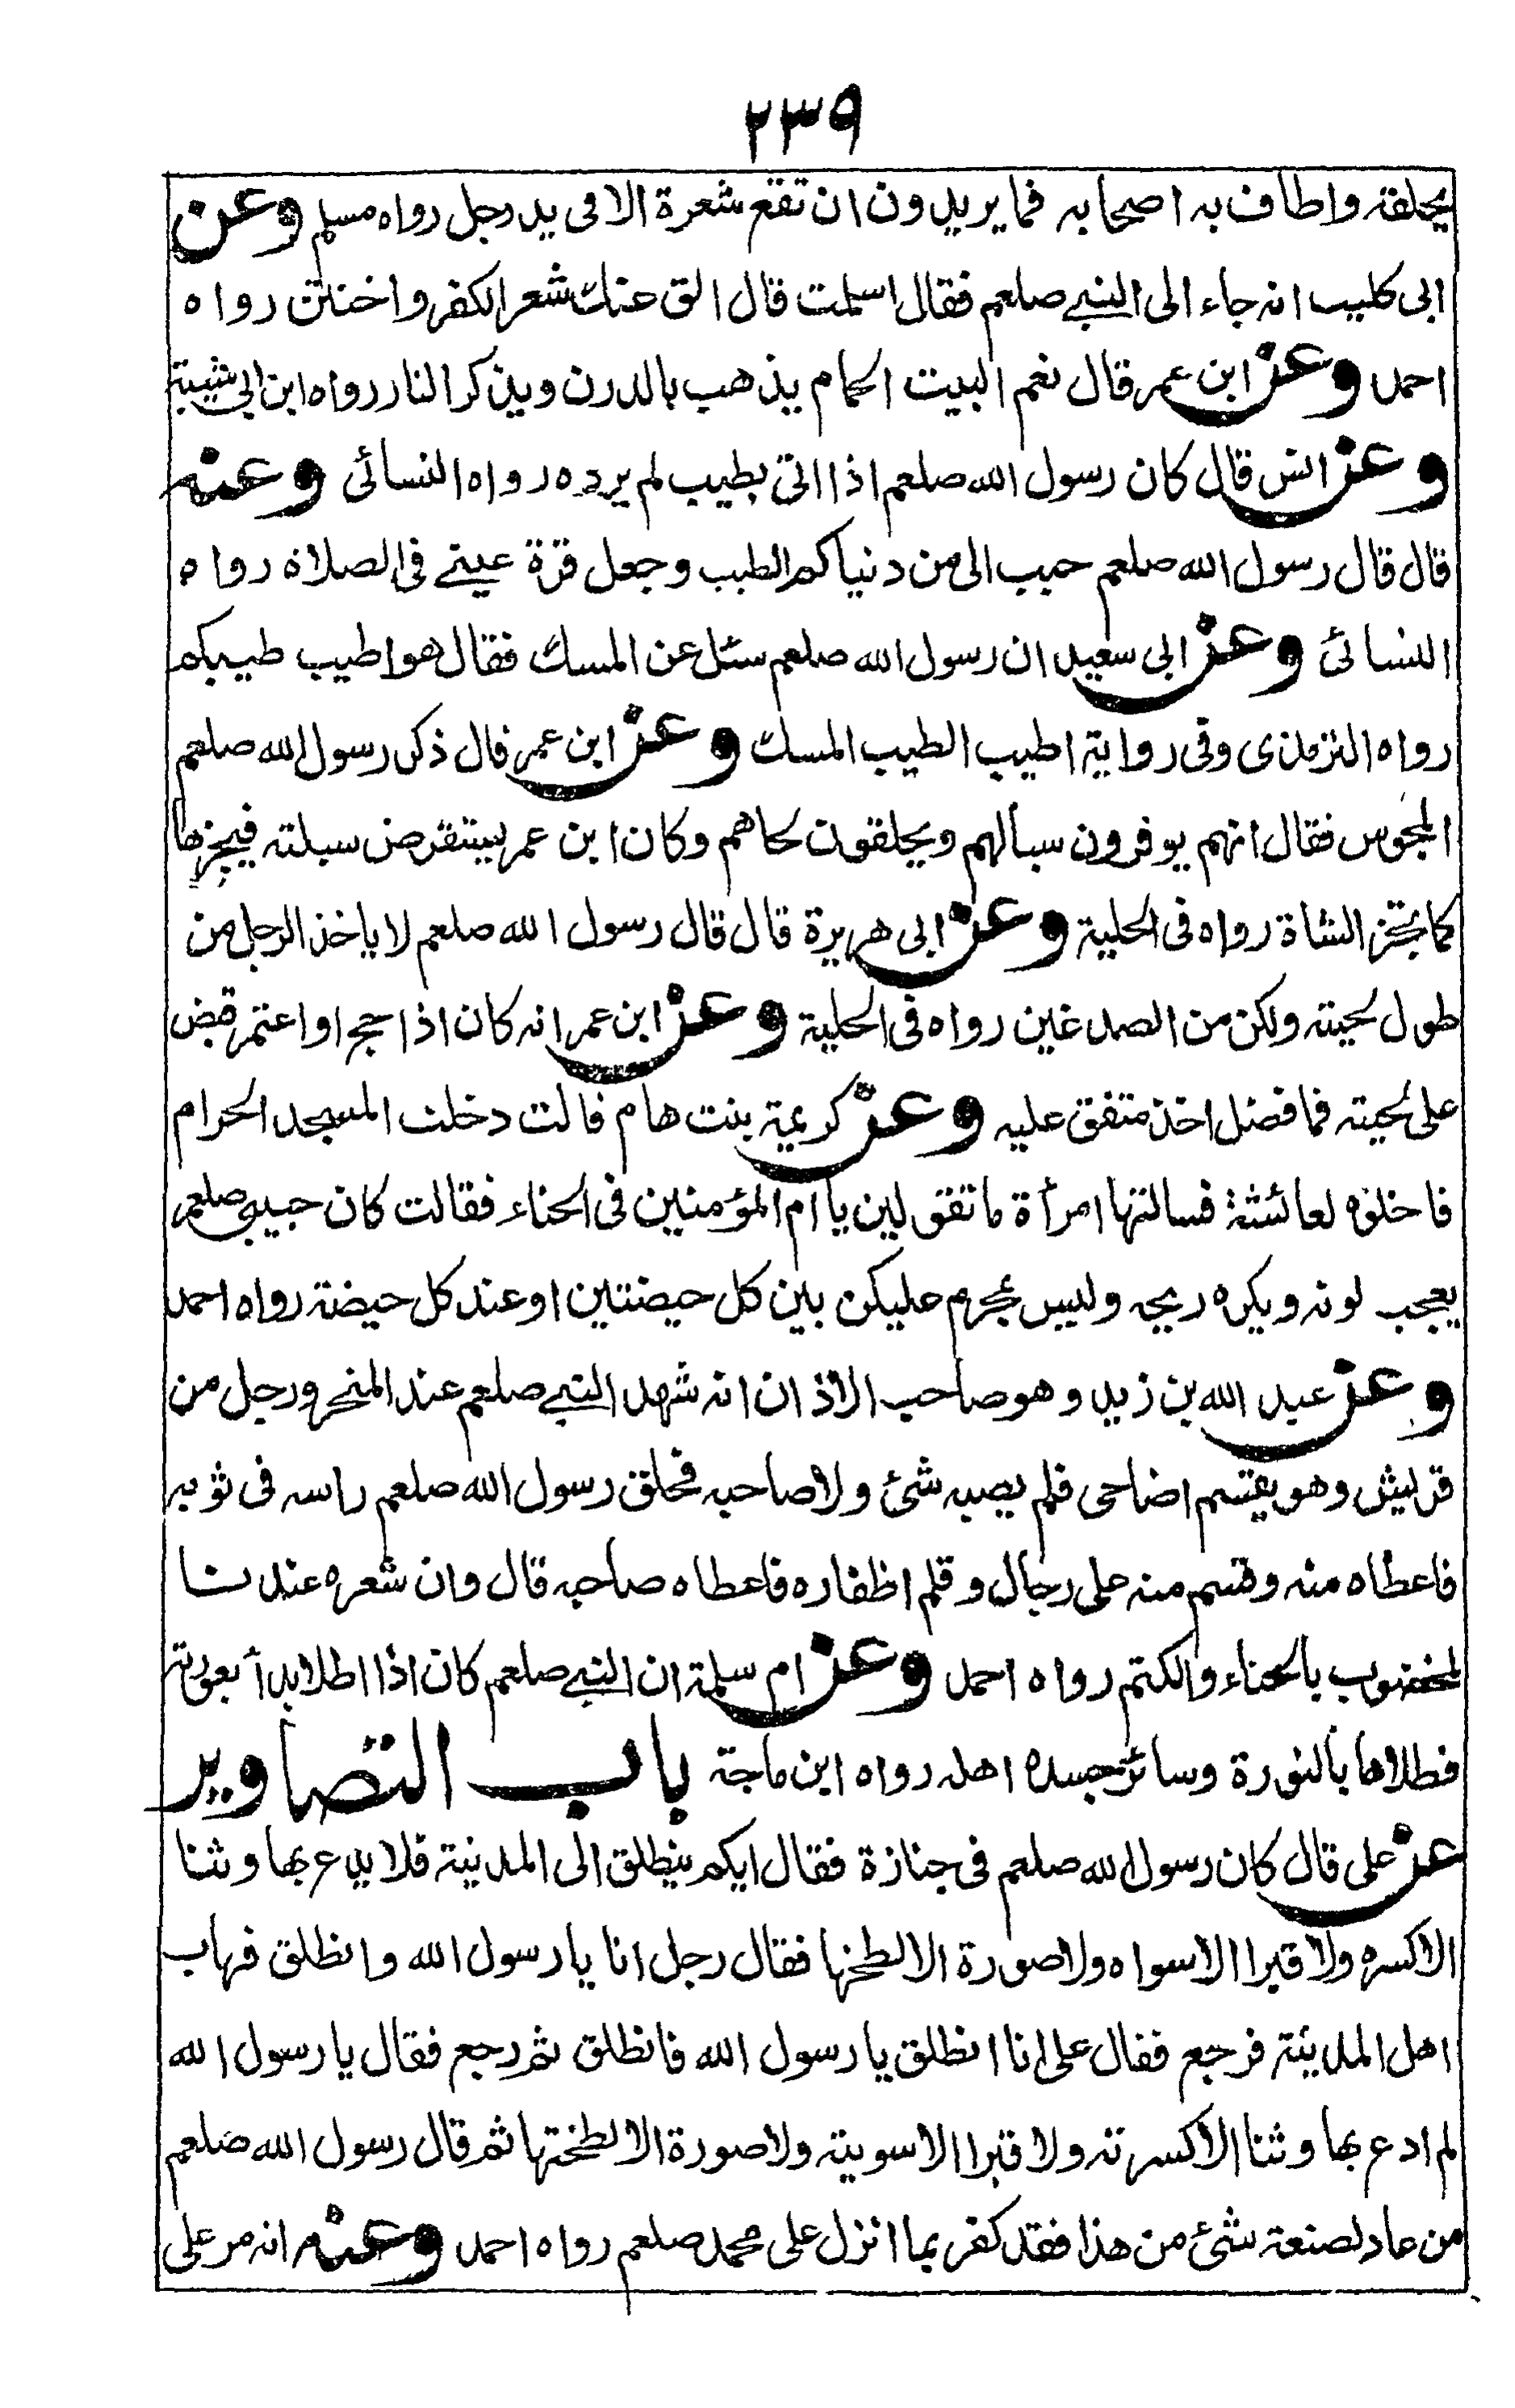 ٢٣٩
يحلقه واطاف به اصحابه فما يريدون ان تقع شعرة الا فى يد رجل رواه مسلم وعن
ابى كليب انه جاء الى النبى صلعم فقال اسلمت قال الق عنك شعر الكفر واختتن رواه
احمد وعن ابن عمر قال نعم البيت الحمام يذهب بالدرن ويذكر النار رواه ابن ابى شيبة
وعن انس قال كان رسول الله صلعم اذا اتى بطيب لم يرده رواه النسائى وعنه
قال قال رسول الله صلعم حبب الى من دنياكم الطيب وجعل قرة عينى فى الصلاة رواه
النسائى وعن ابى سعيد ان رسول الله صلعم سئل عن المسك فقال هو اطيب طيبكم
رواه الترمذى وفى رواية اطيب الطيب المسك وعن ابن عمر قال ذكر رسول الله صلعم
المجوس فقال انهم يوفرون سبالهم ويحلقون لحاهم وكان ابن عمر يستقرض سبلته فيجزها
كما يجز الشاة رواه فى الحلية وعن ابى هريرة قال قال رسول الله صلعم لا ياخذ الرجل من
طول لحيته ولكن من الصدغين رواه فى الحلية وعن ابن عمر انه كان اذا حج او اعتمر قبض
على لحيته فما فضل اخذ متفق عليه وعن كريمة بنت هام قالت دخلت المسجد الحرام
فاخلوه لعائشة فسالتها امرأة ما تقولين يا ام المؤمنين فى الحناء فقالت كان حبيبى صلعم
يعجب لونه ويكره ريحه وليس بمحرم عليكن بين كل حيضتين او عند كل حيضة رواه احمد
وعن عبد الله بن زيد وهو صاحب الاذان انه شهد النبى صلعم عند المنحر ورجل من
قريش وهو يقسم اضاحى فلم يصبه شئ ولا صاحبه فحلق رسول الله صلعم راسه فى ثوبه
فاعطاه منه وقسم منه على رجال وقلم اظفاره فاعطاه صاحبه قال وان شعره عندنا
لمخضوب بالحناء والكتم رواه احمد وعن ام سلمة ان النبى صلعم كان اذا اطلا بدأ بعورته
فطلاها بالنورة وسائر جسده اهله رواه ابن ماجة باب التصاوير
عن على قال كان رسول الله صلعم فى جنازة فقال ايكم ينطلق الى المدينة فلا يدع بها وثنا
الا كسره ولا قبرا الا سواه ولا صورة الا لطخها فقال رجل انا يا رسول الله وانطلق فهاب
اهل المدينة فرجع فقال على انا انطلق يا رسول الله فانطلق ثم رجع فقال يا رسول الله
لم ادع بها وثنا الا كسرته ولا قبرا الا سويته ولا صورة الا لطختها ثم قال رسول الله صلعم
من عاد لصنعة شئ من هذا فقد كفر بما انزل على محمد صلعم رواه احمد وعنه انه مر على